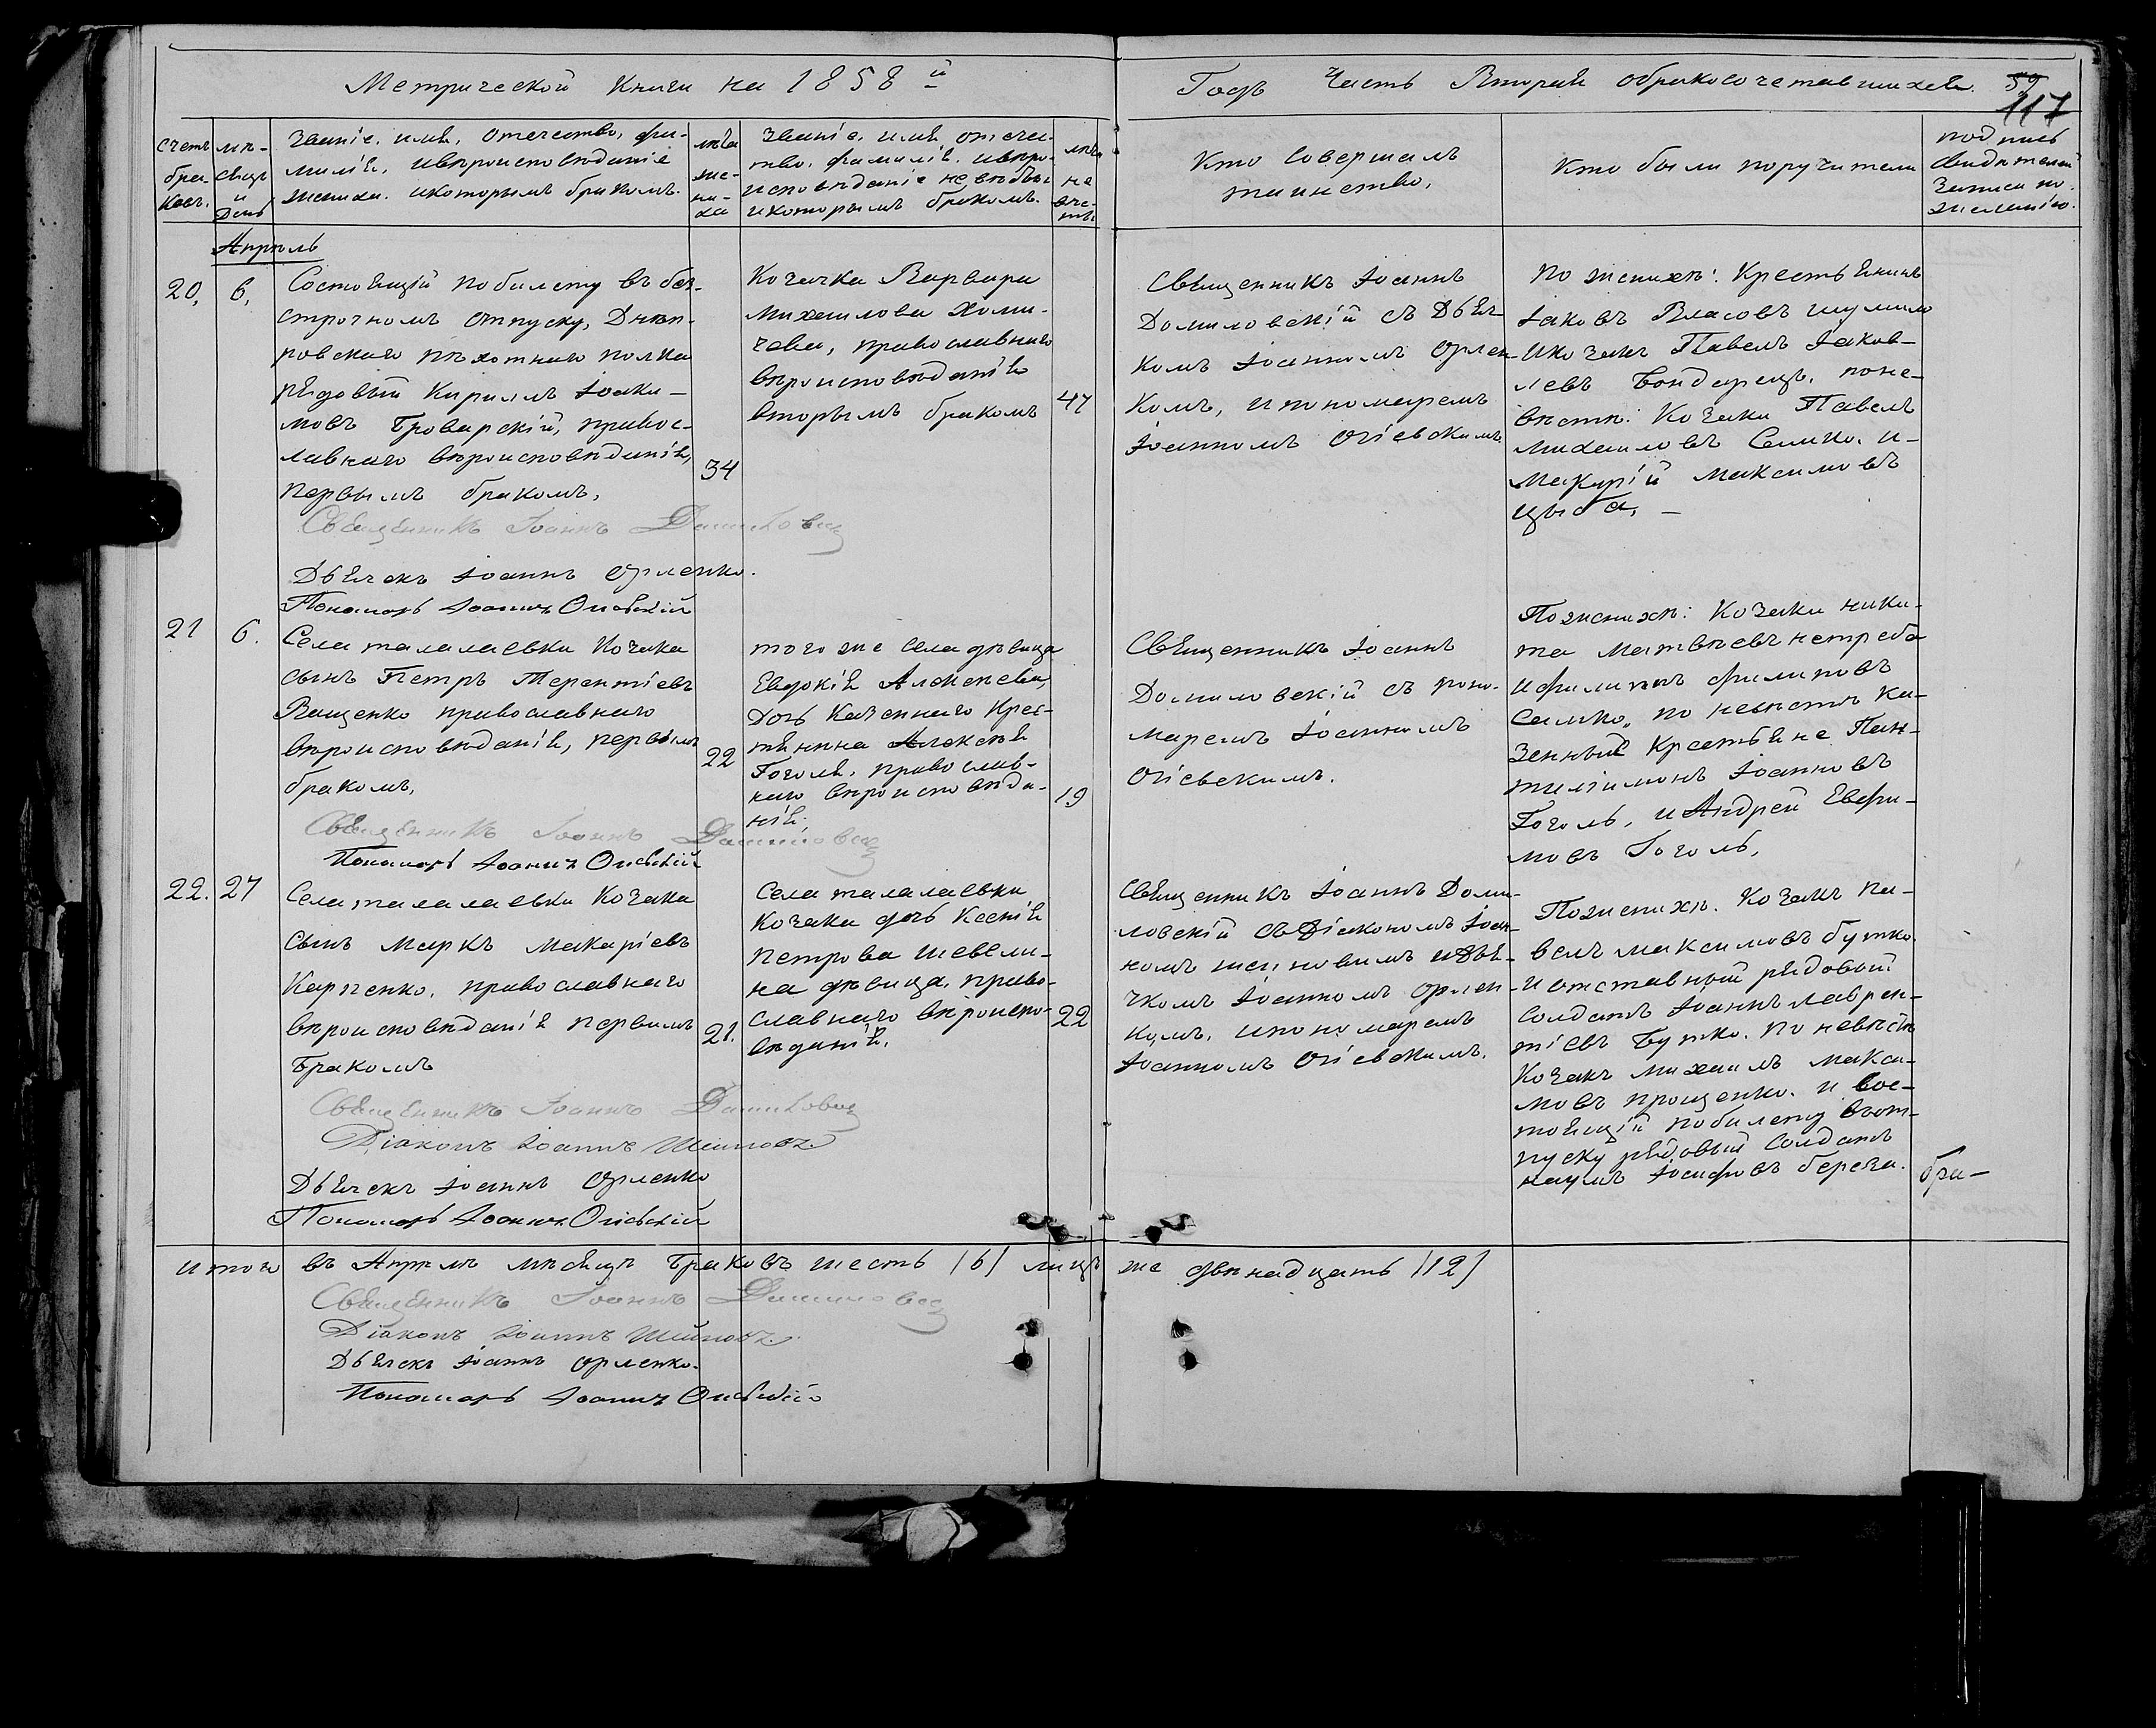 Метрической Книги на 1858 й
Годъ Часть Вторая обракосочетавшихся. 59
117
счетъ браковъ.
мѣсяцъ и День
Званіе, имя, отечество, фамилія, ивѣроисповѣданіе жениха. икоторымъ бракомъ.
лѣта жениха
Званіе, имя, отечество, фамилія, ивѣроисповѣданіе невѣсты икоторымъ бракомъ.
лѣта невѣсты
Кто Совершалъ таинство,
Кто были поручители
подпись Свидѣтелей Записи по желанію.
Апрѣль
20, 6,
Состоящій побилету въ без-
строчномъ отпуску, Днѣп-
ровскаго пѣхотнаго полка
рядовый Кириллъ Іоаки-
мовъ Броварскій, правос-
лавнаго вѣроисповѣданія,
первымъ бракомъ,
34
Козачка Варвара
Михаилова Хоми-
чева, православнаго
вѣроисповѣданія
вторымъ бракомъ
47
Священникъ Іоаннъ
Домиловскій съ Дьяч-
комъ Іоанномъ Орлен-
комъ, ипономаремъ
Іоанномъ Огіевскимъ
По женихѣ: Крестьянинъ
Іаковъ Власовъ Шумило
Икозакъ Павелъ Іаков-
левъ Бондарецъ, поне-
вѣстѣ: Козаки Павелъ
Михаиловъ Самко, и-
Макарій Максимовъ
Цыба, -
Священникъ Іоаннъ Домиловскій
Дьячекъ Іоаннъ Орленко.
Пономарь Іоаннъ Огіевскій
21 6.
Села талалаевки Козака
сынъ Петръ Терентіевъ
Ващенко православнаго
вѣроисповѣданія, первымъ
бракомъ,
22
того же села дѣвица
Евдокія Алексѣева,
Дочь Казеннаго Крес-
тянина Алексѣя
Гоголя, православ-
наго вѣроисповѣда-
нія.
19
Священникъ Іоаннъ
Домиловскій съ поно-
маремъ Іоанномъ
Огіевскимъ.
Поженихѣ: Козаки Ники-
та Матвѣевъ нетреба
ифилиппъ филиповъ
Самко, по невѣстѣ Ка-
зенные Крестьяне Пан-
тилимонъ Іоанновъ
Гоголь, и Андрей Евфи-
мовъ Гоголь,
Священникъ Іоаннъ Домиловскій
Пономарь Іоаннъ Огіевскій
22. 27
Села талалаевки Козака
сынъ Маркъ Макаріевъ
Карпенко, православнаго
вѣроисповѣданія первымъ
Бракомъ
21.
Села талалаевки
Козака дочь Ксенія
Петрова Шевели-
на дѣвица, право-
славнаго вѣроиспо-
вѣданія.
22
Священникъ Іоаннъ Доми-
ловскій съ Діакономъ Іоан-
номъ идья-
чкомъ Іоанномъ Орлен-
комъ, ипономаремъ
Іоанномъ Огіевскимъ.
Поженихѣ. Козакъ Па-
велъ Максимовъ бутко
и отставный рядовый
Солдатъ Іоаннъ лаврен-
тіевъ Бутко. По невѣстѣ
Козакъ Михаилъ Макси-
мовъ прощенко. и сос-
тоящій побилету вътот-
пуску рядовый Солдатъ
наумъ Іосифовъ береза.
бра-
Священникъ Іоаннъ Домиловскій
Діаконъ Іоаннъ
Дьячекъ Іоаннъ Орленко
Пономарь Іоаннъ Огіевскій
итого въ Апрѣлѣ мѣсяцѣ Браковъ шесть /6/ лицъ же двѣнадцать /12/
Священникъ Іоаннъ Домиловскій
Діаконъ Іоаннъ
Дьячекъ Іоаннъ Орленко.
Пономарь Іоаннъ Огіевскій